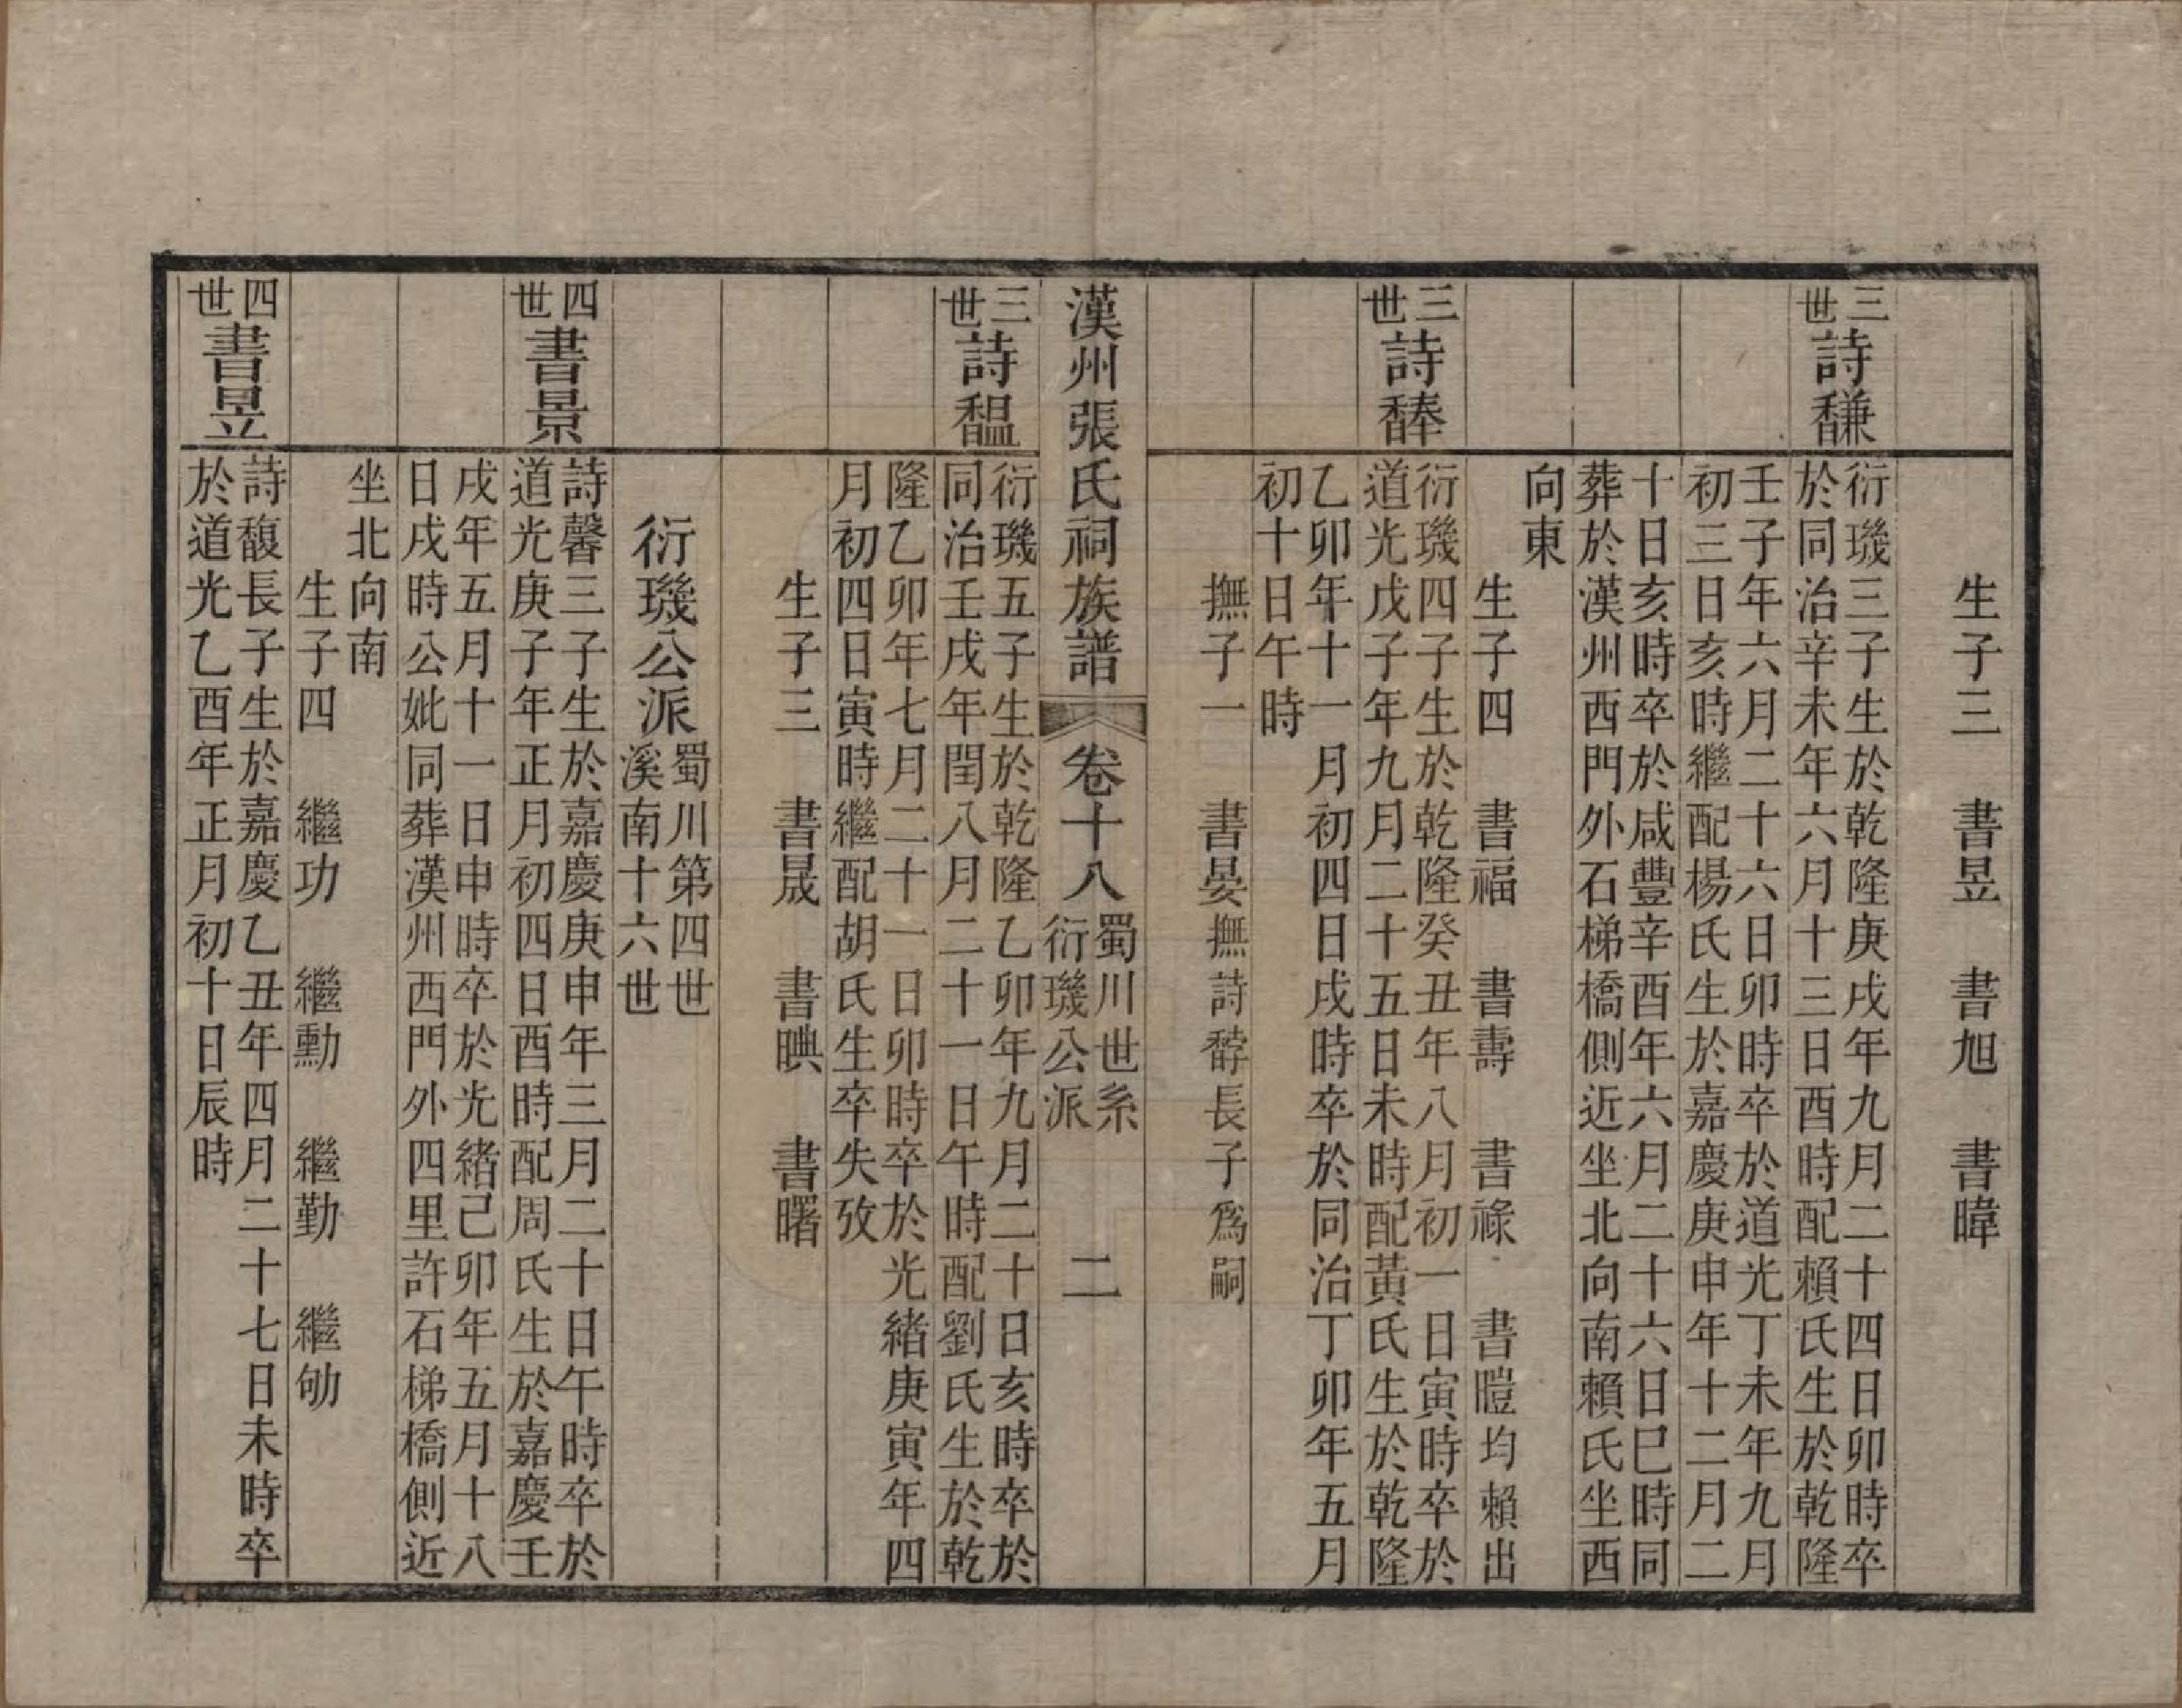 生子三　書昱　書旭　書暐
三世詩馦
衍璣三子生於乾隆庚戌年九月二十四日卯時卒
於同治辛未年六月十三日酉時配賴氏生於乾隆
壬子年六月二十六日卯時卒於道光丁未年九月
初三日亥時繼配楊氏生於嘉慶庚申年十二月二
十日亥時卒於咸豐辛酉年六月二十六日巳時同
葬於漢州西門外石梯橋側近坐北向南賴氏坐西
向東
生子四　書福　書壽　書祿　書暟均賴出
三世詩䭰
衍璣四子生於乾隆癸丑年八月初一日寅時卒於
道光戊子年九月二十五日未時配黃氏生於乾隆
乙卯年十一月初四日戌時卒於同治丁卯年五月
初十日午時
撫子一　書晏撫詩馞長子為嗣
漢州張氏祠族譜　卷十八　蜀川世系衍璣公派　二
三世詩馧
衍璣五子生於乾隆乙卯年九月二十日亥時卒於
同治壬戌年閏八月二十一日午時配劉氏生於乾
隆乙卯年七月二十一日卯時卒於光緒庚寅年四
月初四日寅時繼配胡氏生卒失攷
生子三　書晟　書晪　書曙
衍璣公派蜀川第四世溪南十六世
四世書景
詩馨三子生於嘉慶庚申年三月二十日午時卒於
道光庚子年正月初四日酉時配周氏生於嘉慶壬
戌年五月十一日申時卒於光緒己卯年五月十八
日戌時公妣同葬漢州西門外四里許石梯橋側近
坐北向南
生子四　繼功　繼勳　繼勤　繼劬
四世書昱
詩馥長子生於嘉慶乙丑年四月二十七日未時卒
於道光乙酉年正月初十日辰時